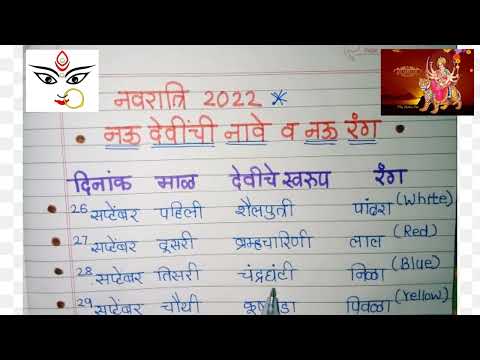 नवरात्रि 2022 *
नऊ देवींची नावे व नऊ रंग
दिनांक माळ देवीचे स्वरुप रंग
26 सप्टेंबर पहिली शैलपुत्री पांढरा (White)
27 सप्टेंबर दूसरी ब्रम्हचारिणी लाल (Red)
28 सप्टेंबर तिसरी चंद्रघंटी निळा (Blue)
29 सप्टेंबर चौथी पिवळा (Yellow)